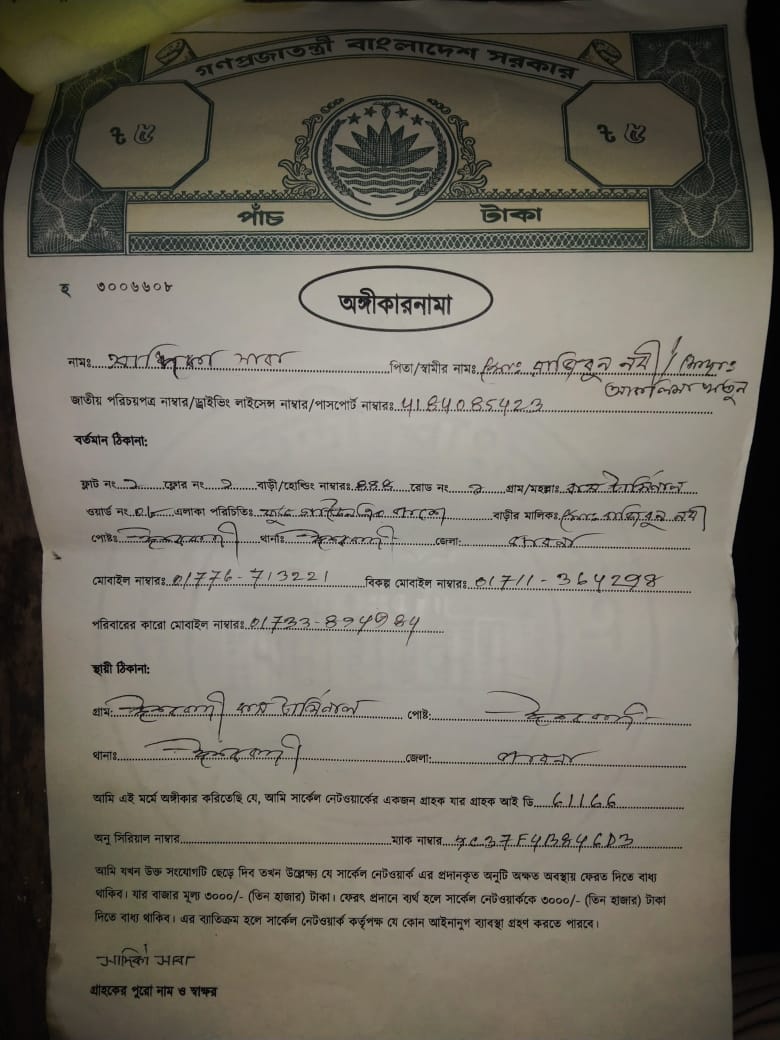 গণপ্রজাতন্ত্রী বাংলাদেশ সরকার
৳ ৫ ৳ ৫
পাঁচ টাকা
হ ৩০০৬৬০৮
অঙ্গীকারনামা
নামঃ সারা পিতা/স্বামীর নামঃ মোঃ রাজিবুন নবী /
জাতীয় পরিচয়পত্র নাম্বার/ড্রাইভিং লাইসেন্স নাম্বার/পাসপোর্ট নাম্বারঃ 4184085423
বর্তমান ঠিকানা:
ফ্লাট নং ফ্লোর নং বাড়ী/হোল্ডিং নাম্বারঃ রোড নং গ্রাম/মহল্লাঃ বাস টার্মিনাল
ওয়ার্ড নং এলাকা পরিচিতিঃ বাড়ীর মালিকঃ মোঃ রাজিবুন নবী
পোষ্টঃ ঈশ্বরদী থানাঃ ঈশ্বরদী জেলা: পাবনা
মোবাইল নাম্বারঃ 01776-713221 বিকল্প মোবাইল নাম্বারঃ 01711-364298
পরিবারের কারো মোবাইল নাম্বারঃ
স্থায়ী ঠিকানা:
গ্রাম: ঈশ্বরদী বাস টার্মিনাল পোষ্ট: ঈশ্বরদী
থানাঃ ঈশ্বরদী জেলা: পাবনা
আমি এই মর্মে অঙ্গীকার করিতেছি যে, আমি সার্কেল নেটওয়ার্কের একজন গ্রাহক যার গ্রাহক আই ডি 61166
অনু সিরিয়াল নাম্বার ম্যাক নাম্বার
আমি যখন উক্ত সংযোগটি ছেড়ে দিব তখন উল্লেক্ষ্য যে সার্কেল নেটওয়ার্ক এর প্রদানকৃত অনুটি অক্ষত অবস্থায় ফেরত দিতে বাধ্য
থাকিব। যার বাজার মূল্য ৩০০০/- (তিন হাজার) টাকা। ফেরৎ প্রদানে ব্যর্থ হলে সার্কেল নেটওয়ার্ককে ৩০০০/- (তিন হাজার) টাকা
দিতে বাধ্য থাকিব। এর ব্যাতিক্রম হলে সার্কেল নেটওয়ার্ক কর্তৃপক্ষ যে কোন আইনানুগ ব্যাবস্থা গ্রহণ করতে পারবে।
সারা
গ্রাহকের পুরো নাম ও স্বাক্ষর